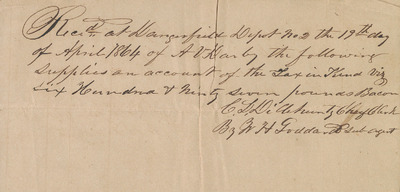 Recd. at Dangerfield Depot No 2 the 19th day
of April 1864 of A V Harby the following
supplies on account of the Tax in Kind Viz
Six Hundred & Ninty Seven pounds Bacon
C. L. Chf Clerk
By W H Goddard Sub Agt